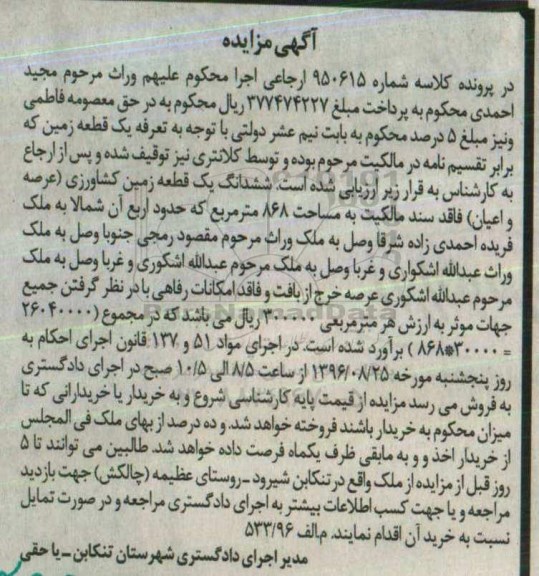 آگهی مزایده
در پرونده کلاسه شماره ۹۵۰۶۱۵ ارجاعی اجرا محکوم علیهم وراث مرحوم مجید
احمدی محکوم به پرداخت مبلغ ۳۷۷۴۷۴۲۲۷ ریال محکوم به در حق معصومه فاطمی
ونیز مبلغ ۵ درصد محکوم به بابت نیم عشر دولتی با توجه به تعرفه یک قطعه زمین که
برابر تقسیم نامه در مالکیت مرحوم بوده و توسط کلانتری نیز توقیف شده و پس از ارجاع
به کارشناس به قرار زیر ارزیابی شده است. ششدانگ یک قطعه زمین کشاورزی (عرصه
و اعیان) فاقد سند مالکیت به مساحت ۸۶۸ مترمربع که حدود اربع آن شمالا به ملک
فریده احمدی زاده شرقا وصل به ملک وراث مرحوم مقصود رمجی جنوبا وصل به ملک
وراث عبدالله اشکواری و غربا وصل به ملک مرحوم عبدالله اشکوری و غربا وصل به ملک
مرحوم عبدالله اشکوری عرصه خرج از بافت و فاقد امکانات رفاهی با در نظر گرفتن جمیع
جهات موثر به ارزش هر مترمربعی ۳۰۰۰۰ ریال می باشد که در مجموع (۲۶۰۴۰۰۰۰
= ۳۰۰۰۰*۸۶۸) برآورد شده است. در اجرای مواد ۵۱ و ۱۳۷ قانون اجرای احکام به
روز پنجشنبه مورخه ۱۳۹۶/۰۸/۲۵ از ساعت ۸/۵ الی ۱۰/۵ صبح در اجرای دادگستری
به فروش می رسد مزایده از قیمت پایه کارشناسی شروع و به خریدار یا خریدارانی که تا
میزان محکوم به خریدار باشند فروخته خواهد شد. و ده درصد از بهای ملک فی المجلس
از خریدار اخذ و و به مابقی ظرف یکماه فرصت داده خواهد شد. طالبین می توانند تا ۵
روز قبل از مزایده از ملک واقع در تنکابن شیرود ـ روستای عظیمه (چالکش) جهت بازدید
مراجعه و یا جهت کسب اطلاعات بیشتر به اجرای دادگستری مراجعه و در صورت تمایل
نسبت به خرید آن اقدام نمایند. م.الف ۵۳۳/۹۶
مدیر اجرای دادگستری شهرستان تنکابن ـ یاحقی